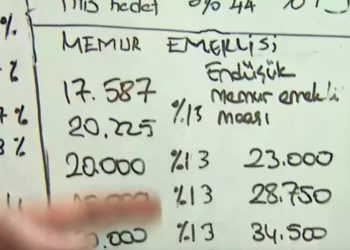 hedef %44
%
MEMUR EMEKLİSİ
%
17.587 Endüşük
% %13 memur emekli
20.225 maaşı
%
20.000 %13 23.000
%13 28.750
.000 %13 34.500